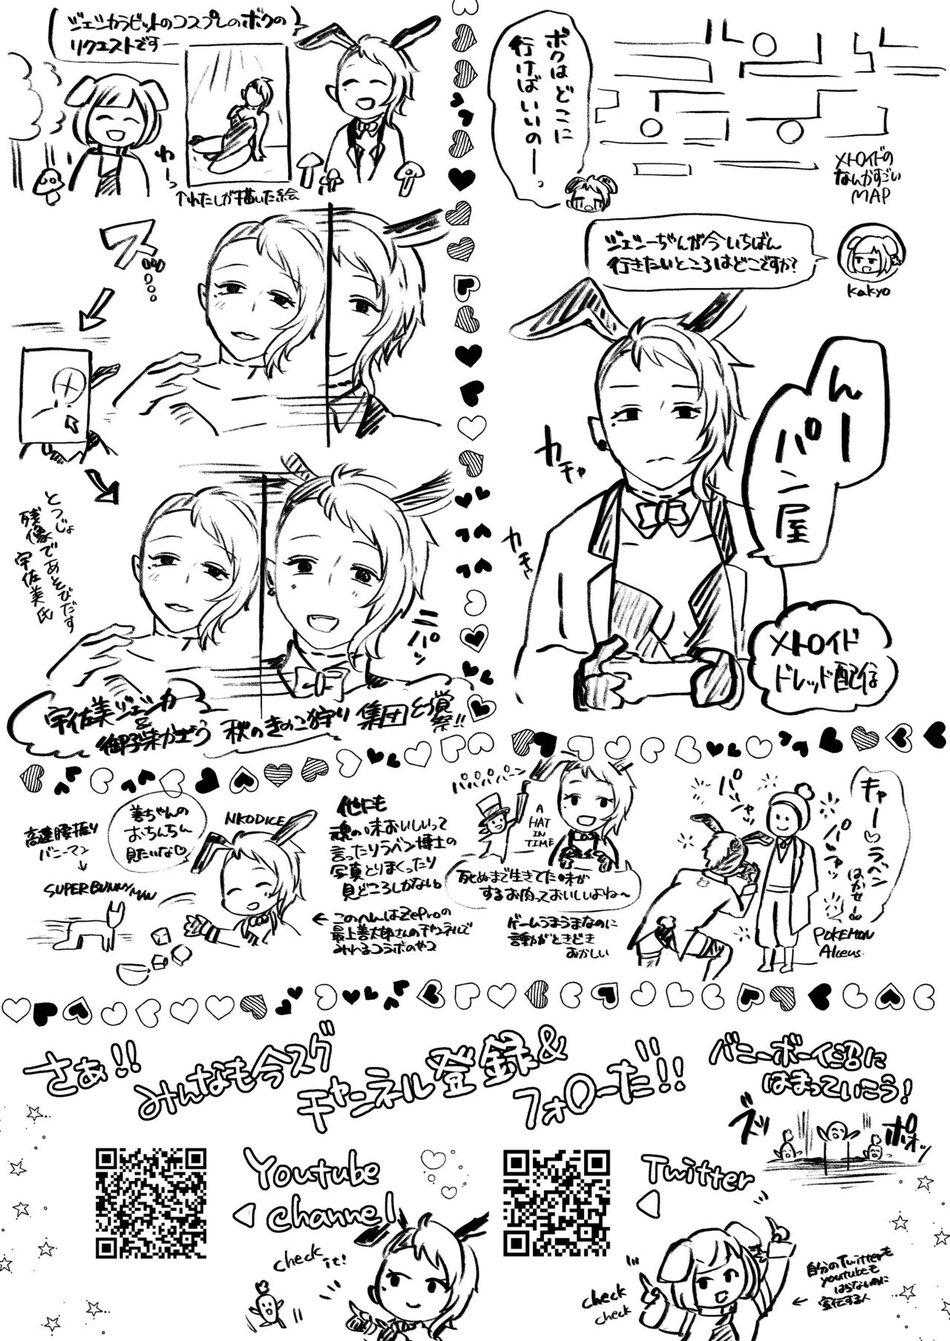 ジェシカラビットのコスプレのボクの
リクエストですー
わーっ
↑わたしが描いた絵
ス…
とつじょ
残像であそびだす
宇佐美氏
ニパッ
宇佐美ジェシカ
&
秋のきのこ狩り 集団と
ボクはどこに
行けばいいのー
メトロイドの
なんかすごい
MAP
ジェシーちゃんが今いちばん
行きたいところはどこですか?
kakyo
んー
パン屋
カチャ
カチャ
メトロイド
ドレッド配信
高速腰振り
バニーマン
SUPER BUNNY MAN
姜ちゃんの
おちんちん
見たいな♡
NKODICE
他にも
魂の味おいしいって
言ったりラベン博士の
写真とりまくったり
見どころしかない。
←このへんはZeProの
最上善太郎さんのチャンネルで
みれるコラボのやつ
パパパパーン
A
HAT
IN
TIME
死ぬまで生きてた味が
するお肉っておいしいよね〜
ゲームうまうまなのに
言動がときどき
おかしい
パシャ
パシャ
キャー♡ラベン
はかせ〜
POKEMON
Alceus
さぁ!!
みんなも今スグ
チャンネル登録&
フォローだ!!
バニーボーイ沼に
はまっていこう!
ズッ
ポオッ
Youtube
channel
check
it!
Twitter
check
check
←自分のTwitterも
youtubeも
はらないのに
宣伝する人